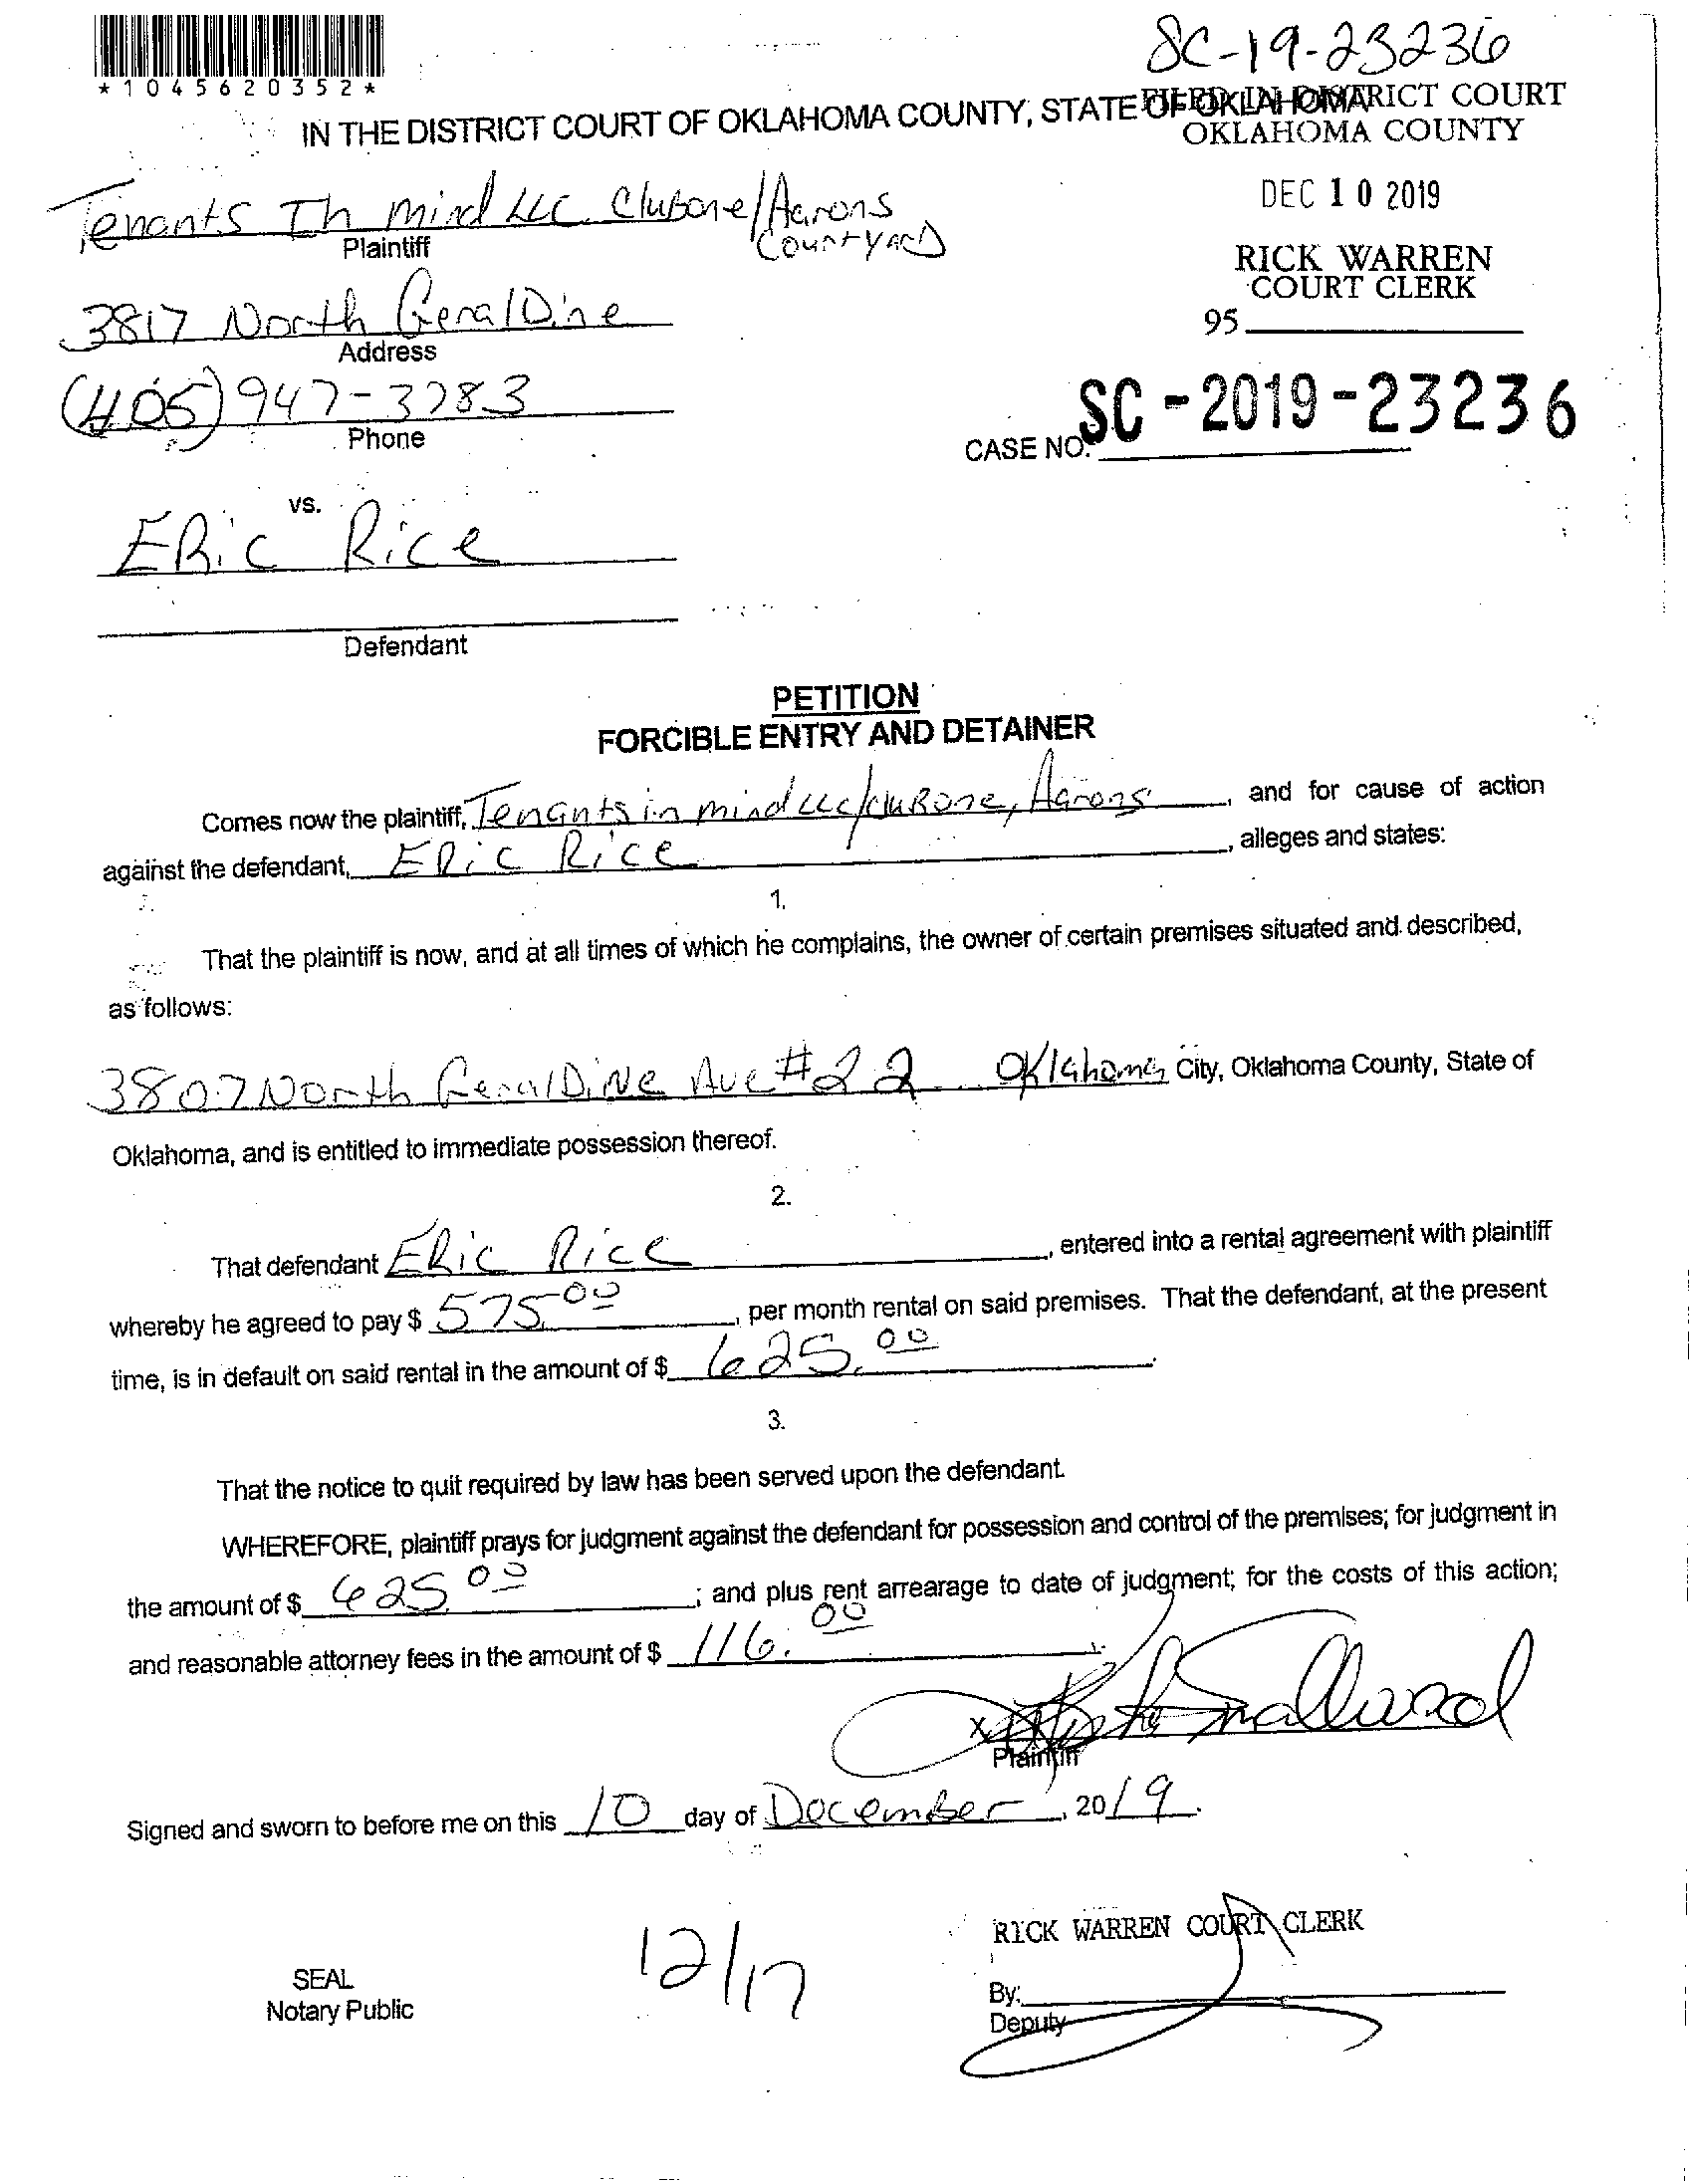 *1045620352*
SC-19-23236
IN THE DISTRICT COURT OF OKLAHOMA COUNTY, STATE OF OKLAHOMA
FILED IN DISTRICT COURT
OKLAHOMA COUNTY
DEC 10 2019
RICK WARREN
COURT CLERK
95
Tenants In mind LLC Clubone/Aarons
CountyarD
Plaintiff
3817 North GeralDine
Address
(405) 947-3783
Phone
CASE NO. SC-2019-23236
vs.
ERic Rice
Defendant
PETITION
FORCIBLE ENTRY AND DETAINER
Comes now the plaintiff, Tenants in mind LLC/cluBone, Aarons, and for cause of action
against the defendant, ERic Rice, alleges and states:
1.
That the plaintiff is now, and at all times of which he complains, the owner of certain premises situated and described,
as follows:
3807 North GeralDiNe Ave #22 Oklahoma City, Oklahoma County, State of
Oklahoma, and is entitled to immediate possession thereof.
2.
That defendant ERic Rice, entered into a rental agreement with plaintiff
whereby he agreed to pay $ 575.00, per month rental on said premises. That the defendant, at the present
time, is in default on said rental in the amount of $ 625.00.
3.
That the notice to quit required by law has been served upon the defendant.
WHEREFORE, plaintiff prays for judgment against the defendant for possession and control of the premises; for judgment in
the amount of $ 625.00; and plus rent arrearage to date of judgment; for the costs of this action;
and reasonable attorney fees in the amount of $ 116.00.
x Smallwood
Plaintiff
Signed and sworn to before me on this 10 day of December, 2019.
RICK WARREN COURT CLERK
12/17
SEAL
Notary Public
By:
Deputy